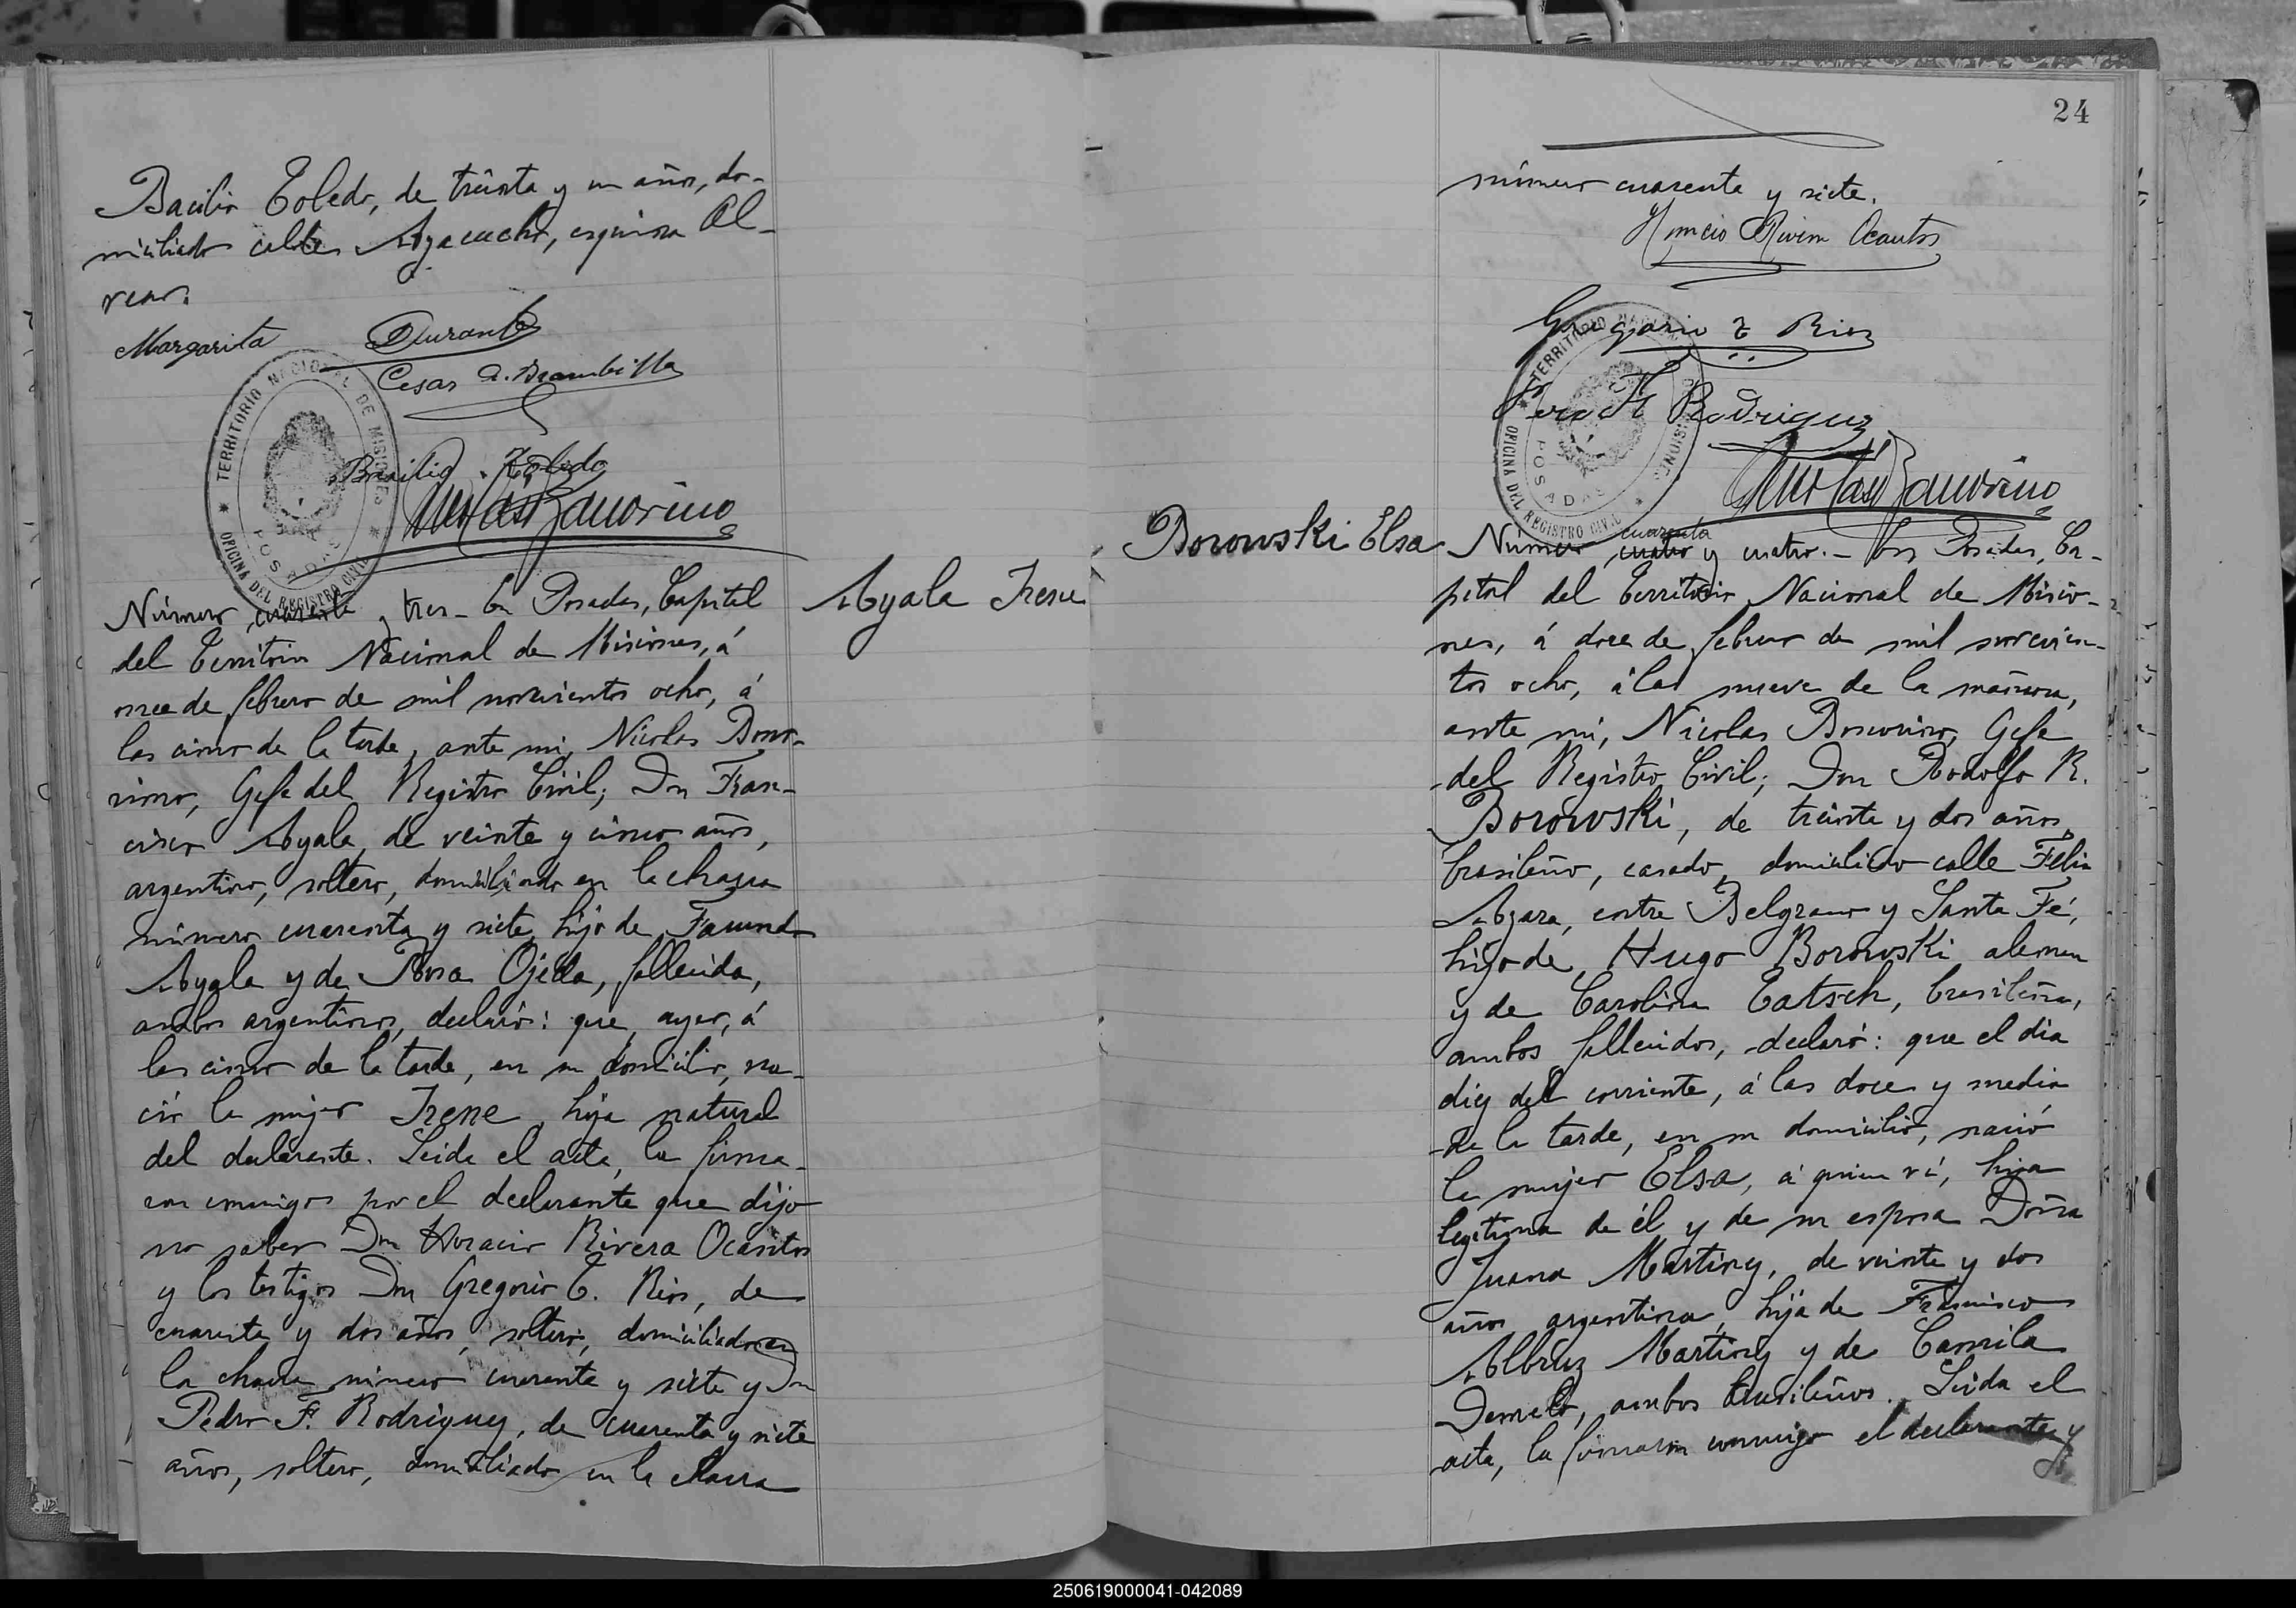 Basilio Toledo, de treinta y un años, do-
miciliado calles Ayacucho, esquina Al-
vear.
Margarita Durante
Cesar A. Brambilla
Basilio Toledo
Nicolas Bonorino
TERRITORIO NACIONAL DE MISIONES
OFICINA DEL REGISTRO CIVIL
POSADAS
Ayala Irene
Número cuarenta y tres - En Posadas, Capital
del Territorio Nacional de Misiones, á
once de febrero de mil novecientos ocho, á
las cinco de la tarde, ante mi, Nicolas Bono-
rino, Gefe del Registro Civil; Don Fran-
cisco Ayala, de veinte y cinco años,
argentino, soltero, domiciliado en la chacra
número cuarenta y siete, hijo de Facundo
Ayala y de Rosa Ojeda, fallecida,
ambos argentinos, declaró: que, ayer, á
las cinco de la tarde, en su domicilio, na-
ció la mujer Irene, hija natural
del declarante. Leida el acta, la firma-
ron conmigo por el declarante que dijo
no saber Don Horacio Rivera Ocantos
y los testigos Don Gregorio T. Rios, de
cuarenta y dos años, soltero, domiciliado en
la chacra número cuarenta y siete y Don
Pedro F. Rodriguez, de cuarenta y siete
años, soltero, domiciliado en la chacra
24
número cuarenta y siete.
Horacio Rivera Ocantos
Gregorio T Rios
Pedro F Rodriguez
Nicolas Bonorino
TERRITORIO NACIONAL DE MISIONES
OFICINA DEL REGISTRO CIVIL
POSADAS
Borowski Elsa
cuarenta
Número cuatro y cuatro. - En Posadas, Ca-
pital del Territorio Nacional de Misio-
nes, á doce de febrero de mil novecien-
tos ocho, á las nueve de la mañana,
ante mi, Nicolas Bonorino, Gefe
del Registro Civil; Don Rodolfo R.
Borowski, de treinta y dos años,
brasileño, casado, domiciliado calle Felix
Azara, entre Belgrano y Santa Fé,
hijo de Hugo Borowski aleman
y de Carolina Tatsch, brasileña,
ambos fallecidos, declaró: que el dia
diez del corriente, á las doce y media
de la tarde, en su domicilio, nació
la mujer Elsa, á quien ví, hija
legitima de él y de su esposa Doña
Juana Martinz, de veinte y dos
años argentina, hija de Francisco
Albruz Martinz y de Camila
Demelo, ambos brasileños. Leida el
acta, la firmaron conmigo el declarante y